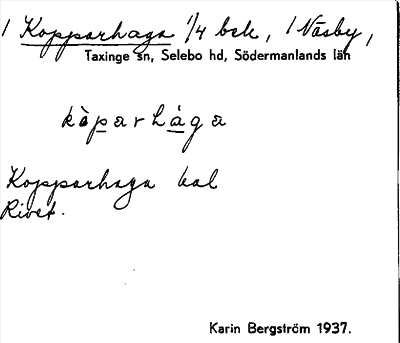 1 Kopparhaga 1/4 bek, 1 Näsby,
Taxinge sn, Selebo hd, Södermanlands län
kòparhága
Kopparhaga bal
Rivet.
Karin Bergström 1937.